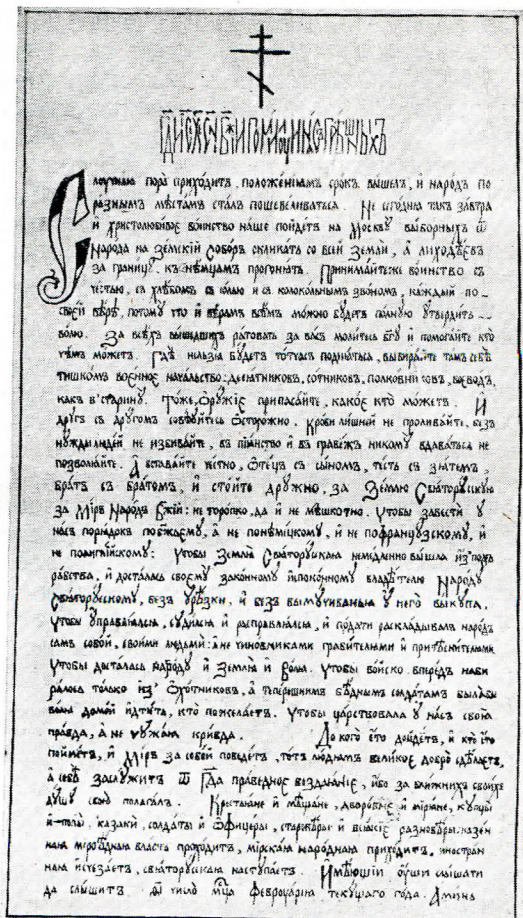 Слушная пора приходитъ. положеніямъ срокъ вышелъ, и народъ по
разнымъ мѣстамъ сталъ пошевеливаться. Не сгодня такъ завтра
и христолюбивое воинство наше пойдетъ на Москву выборныхъ ѿ
Народа на Земскій Соборъ скликать со всей Земли, а лиходѣевъ
за границу, къ нѣмцамъ прогонять. Принимайтеже воинство съ
честью, съ хлѣбомъ съ солью и съ колокольнымъ звономъ, каждый по
своей вѣрѣ, потому что и вѣрамъ всѣмъ можно будетъ полную утвердить
волю. За всѣхъ вышедшихъ ратовать за васъ молитесь Бгу и помогайте кто
чѣмъ можетъ. Гдѣ нельзя будетъ тотчасъ подняться, выбирайте тамъ себѣ
тишкомъ военное начальство: десятниковъ, сотниковъ, полковниковъ, воеводъ,
какъ в старину. Тоже, Оружіе припасайте, какое кто можетъ. И
другъ съ другомъ совѣтуйтесь Осторожно. Крови лишней не проливайте, безъ
нужды людей не избивайте, въ піянство и въ грабежъ никому вдаваться не
позволяйте. А вставайте честно, Отецъ съ сыномъ, тесть съ зятемъ,
братъ съ братомъ, и стойте дружно, за Землю Святорусскую
за Міръ Народъ Бжій: не торопко, да и не мѣшкотно. Чтобы завести у
насъ порядокъ поксвоему, а не понѣмецкому, и не пофранцузскому, и
не поанглійскому: Чтобы Земля Святорусская немедленно вышла из подъ
рабства, и досталась своему законному испоконному владѣтелю Народу
Святорусскому, безъ урѣзки, и безъ вымучиванья у него выкупа,
Чтобы управлялся, судился и расправлялся, и подати раскладывалъ народъ
самъ собой, своими людьми: а не чиновниками грабителями и притѣснителями
Чтобы досталась народу и Земля и Воля. Чтобы войско впередъ наби
ралось только из Охотниковъ, а теперешнимъ бѣднымъ солдатамъ былабы
воля домой идтить, кто пожелаетъ. Чтобы царствовала у насъ своя
правда, а не чужая кривда. До кого это дойдетъ, и кто это
пойметъ, и Міръ за собой поведетъ, тотъ людямъ великое добро сдѣлаетъ,
а себѣ заслужитъ ѿ Гда праведное воздаяніе, ибо за ближнихъ своихъ
душу свою полагалъ. Крестьяне и мѣщане, дворовые и міряне, купцы
казаки, солдаты и Офицеры, старовѣры и всякіе разновѣры: казен
ная власть проходитъ, мірская народная приходитъ, иностран
ная исчезаетъ, святорусская наступаетъ. Имѣющій уши слышати
да слышитъ. число мца февроуаріа текущаго года. Аминь